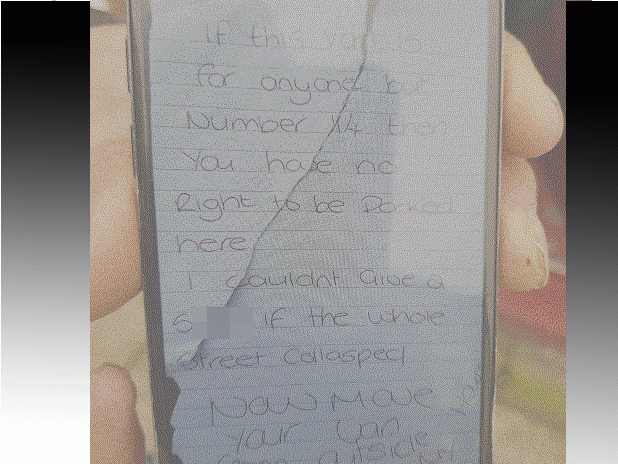 If this Van is
for anyone but
Number 14 then
You have no
Right to be Parked
here
I couldnt Give a
S if the whole
Street Collasped
Now Move
Your Van
outside